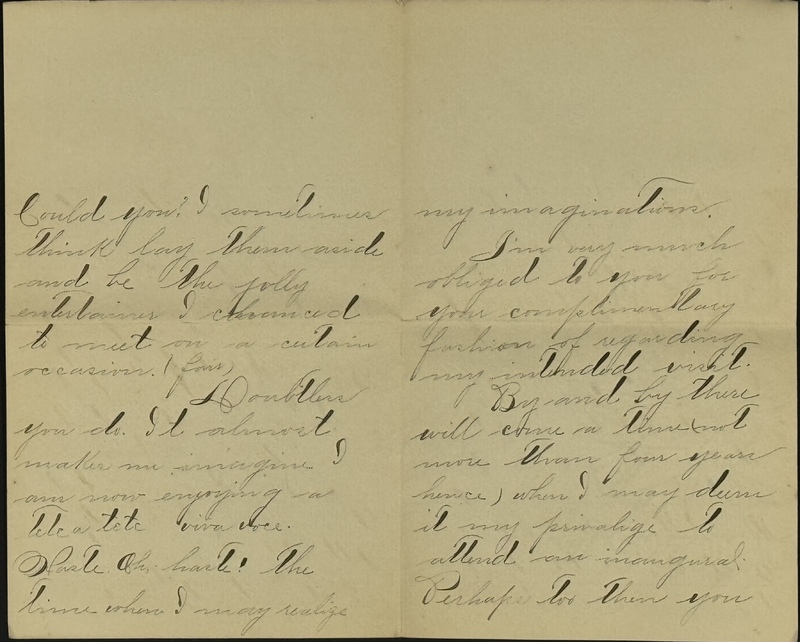 Could you? I sometimes
think lay them aside
and be the jolly
entertainer I chanced
to meet on a certain
occasion. (four)
Doubtless
you do. It almost
makes me imagine I
am now enjoying a
tete a tete viva voce.
Haste, Oh, haste! the
time when I may realize
my imaginations.
I'm very much
obliged to you for
your complimentary
fashion of regarding
my intended visit.
By and by there
will come a time (not
more than four years
hence) when I may deem
it my privalige to
attend an inaugural.
Perhaps too then you